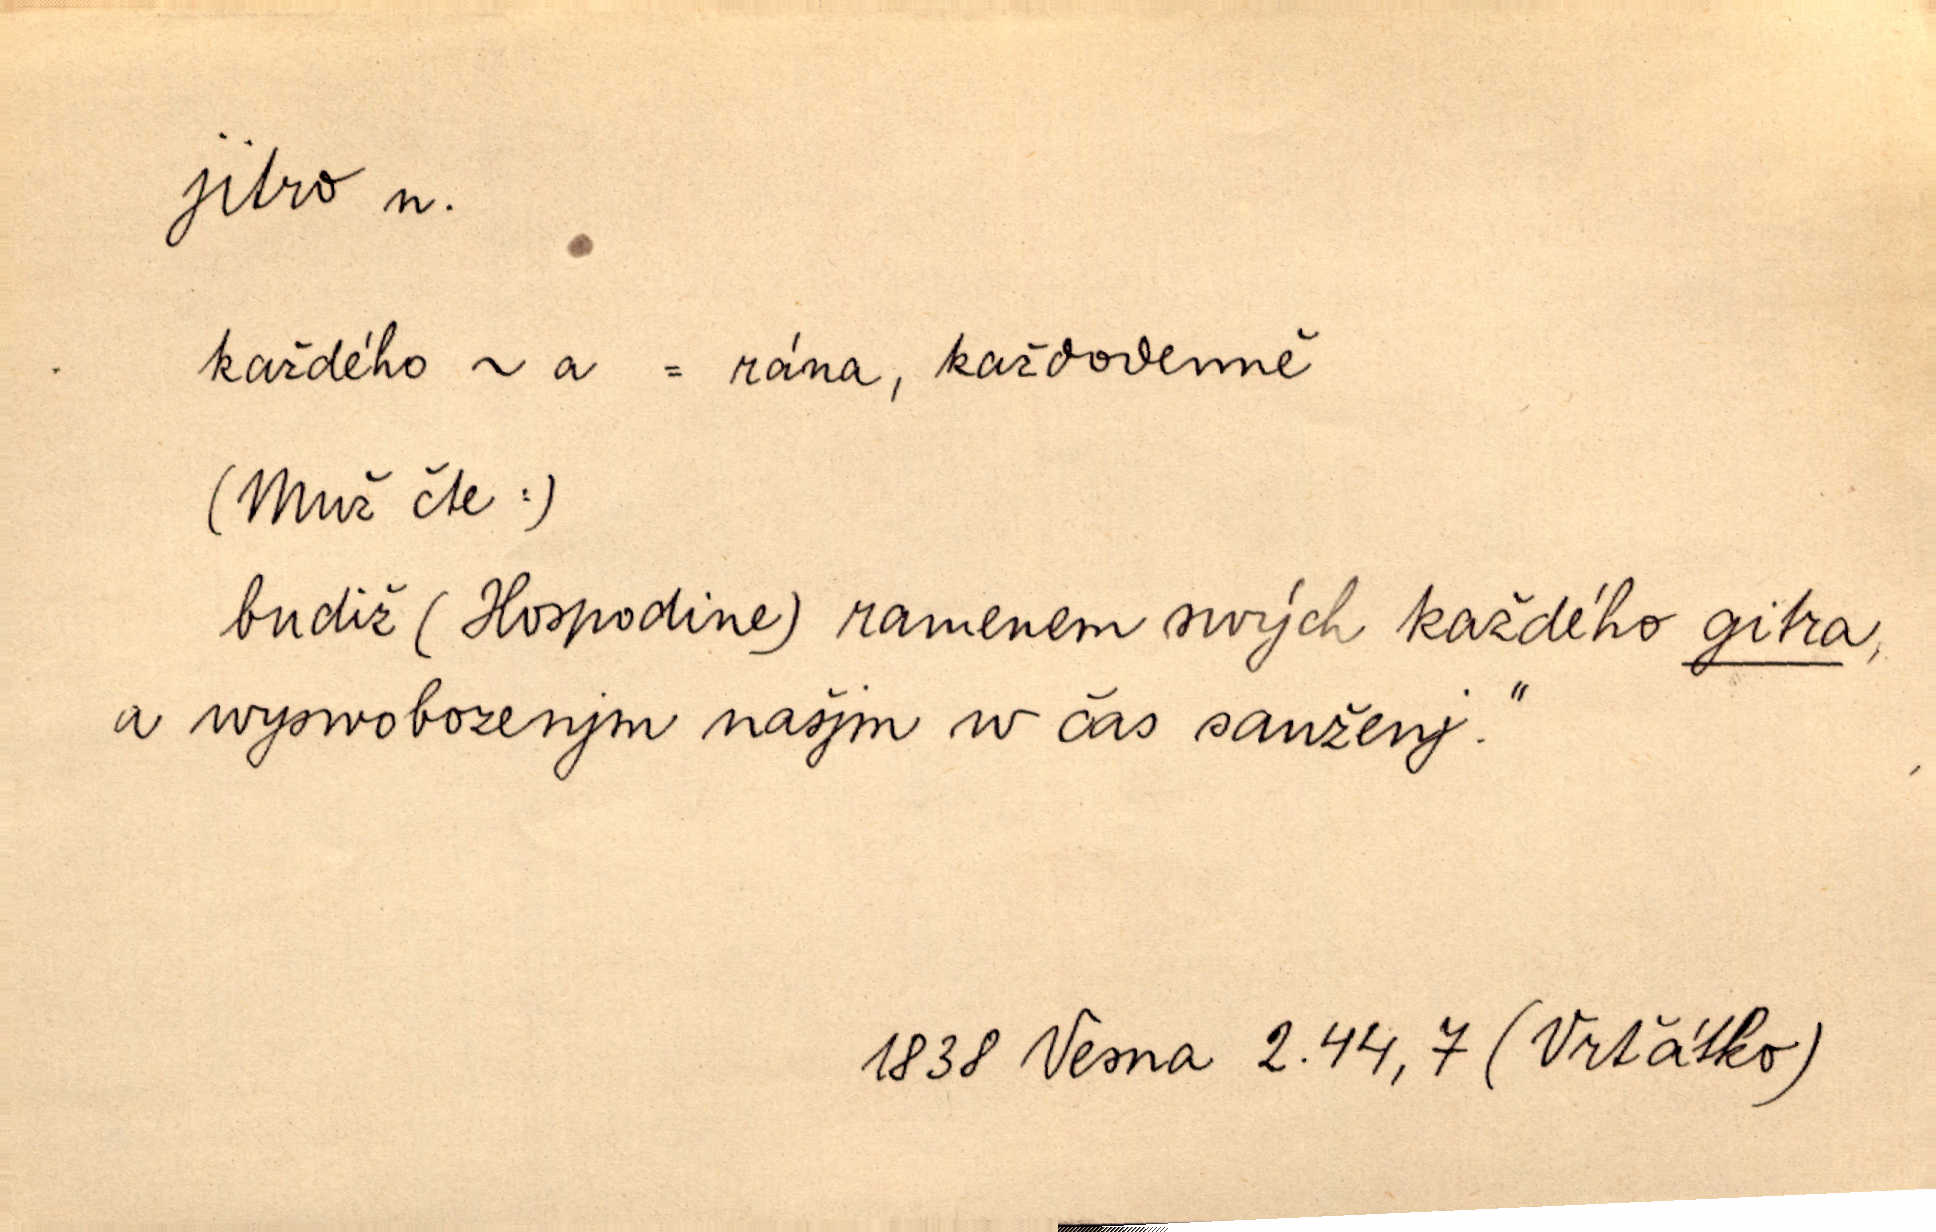 jitro n.
každého ~ a = rána, každodenně
(Muž čte :)
budiž (Hospodine) ramenem swých každého gitra,
a wyswobozenjm našjm w čas sauženj."
1838 Vesna 2.44,7 (Vrťátko)